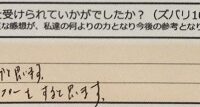 を受けられていかがでしたか？（ズバリ10
な感想が、私達の何よりの力となり今後の参考となり
て思います。
もすると思います。